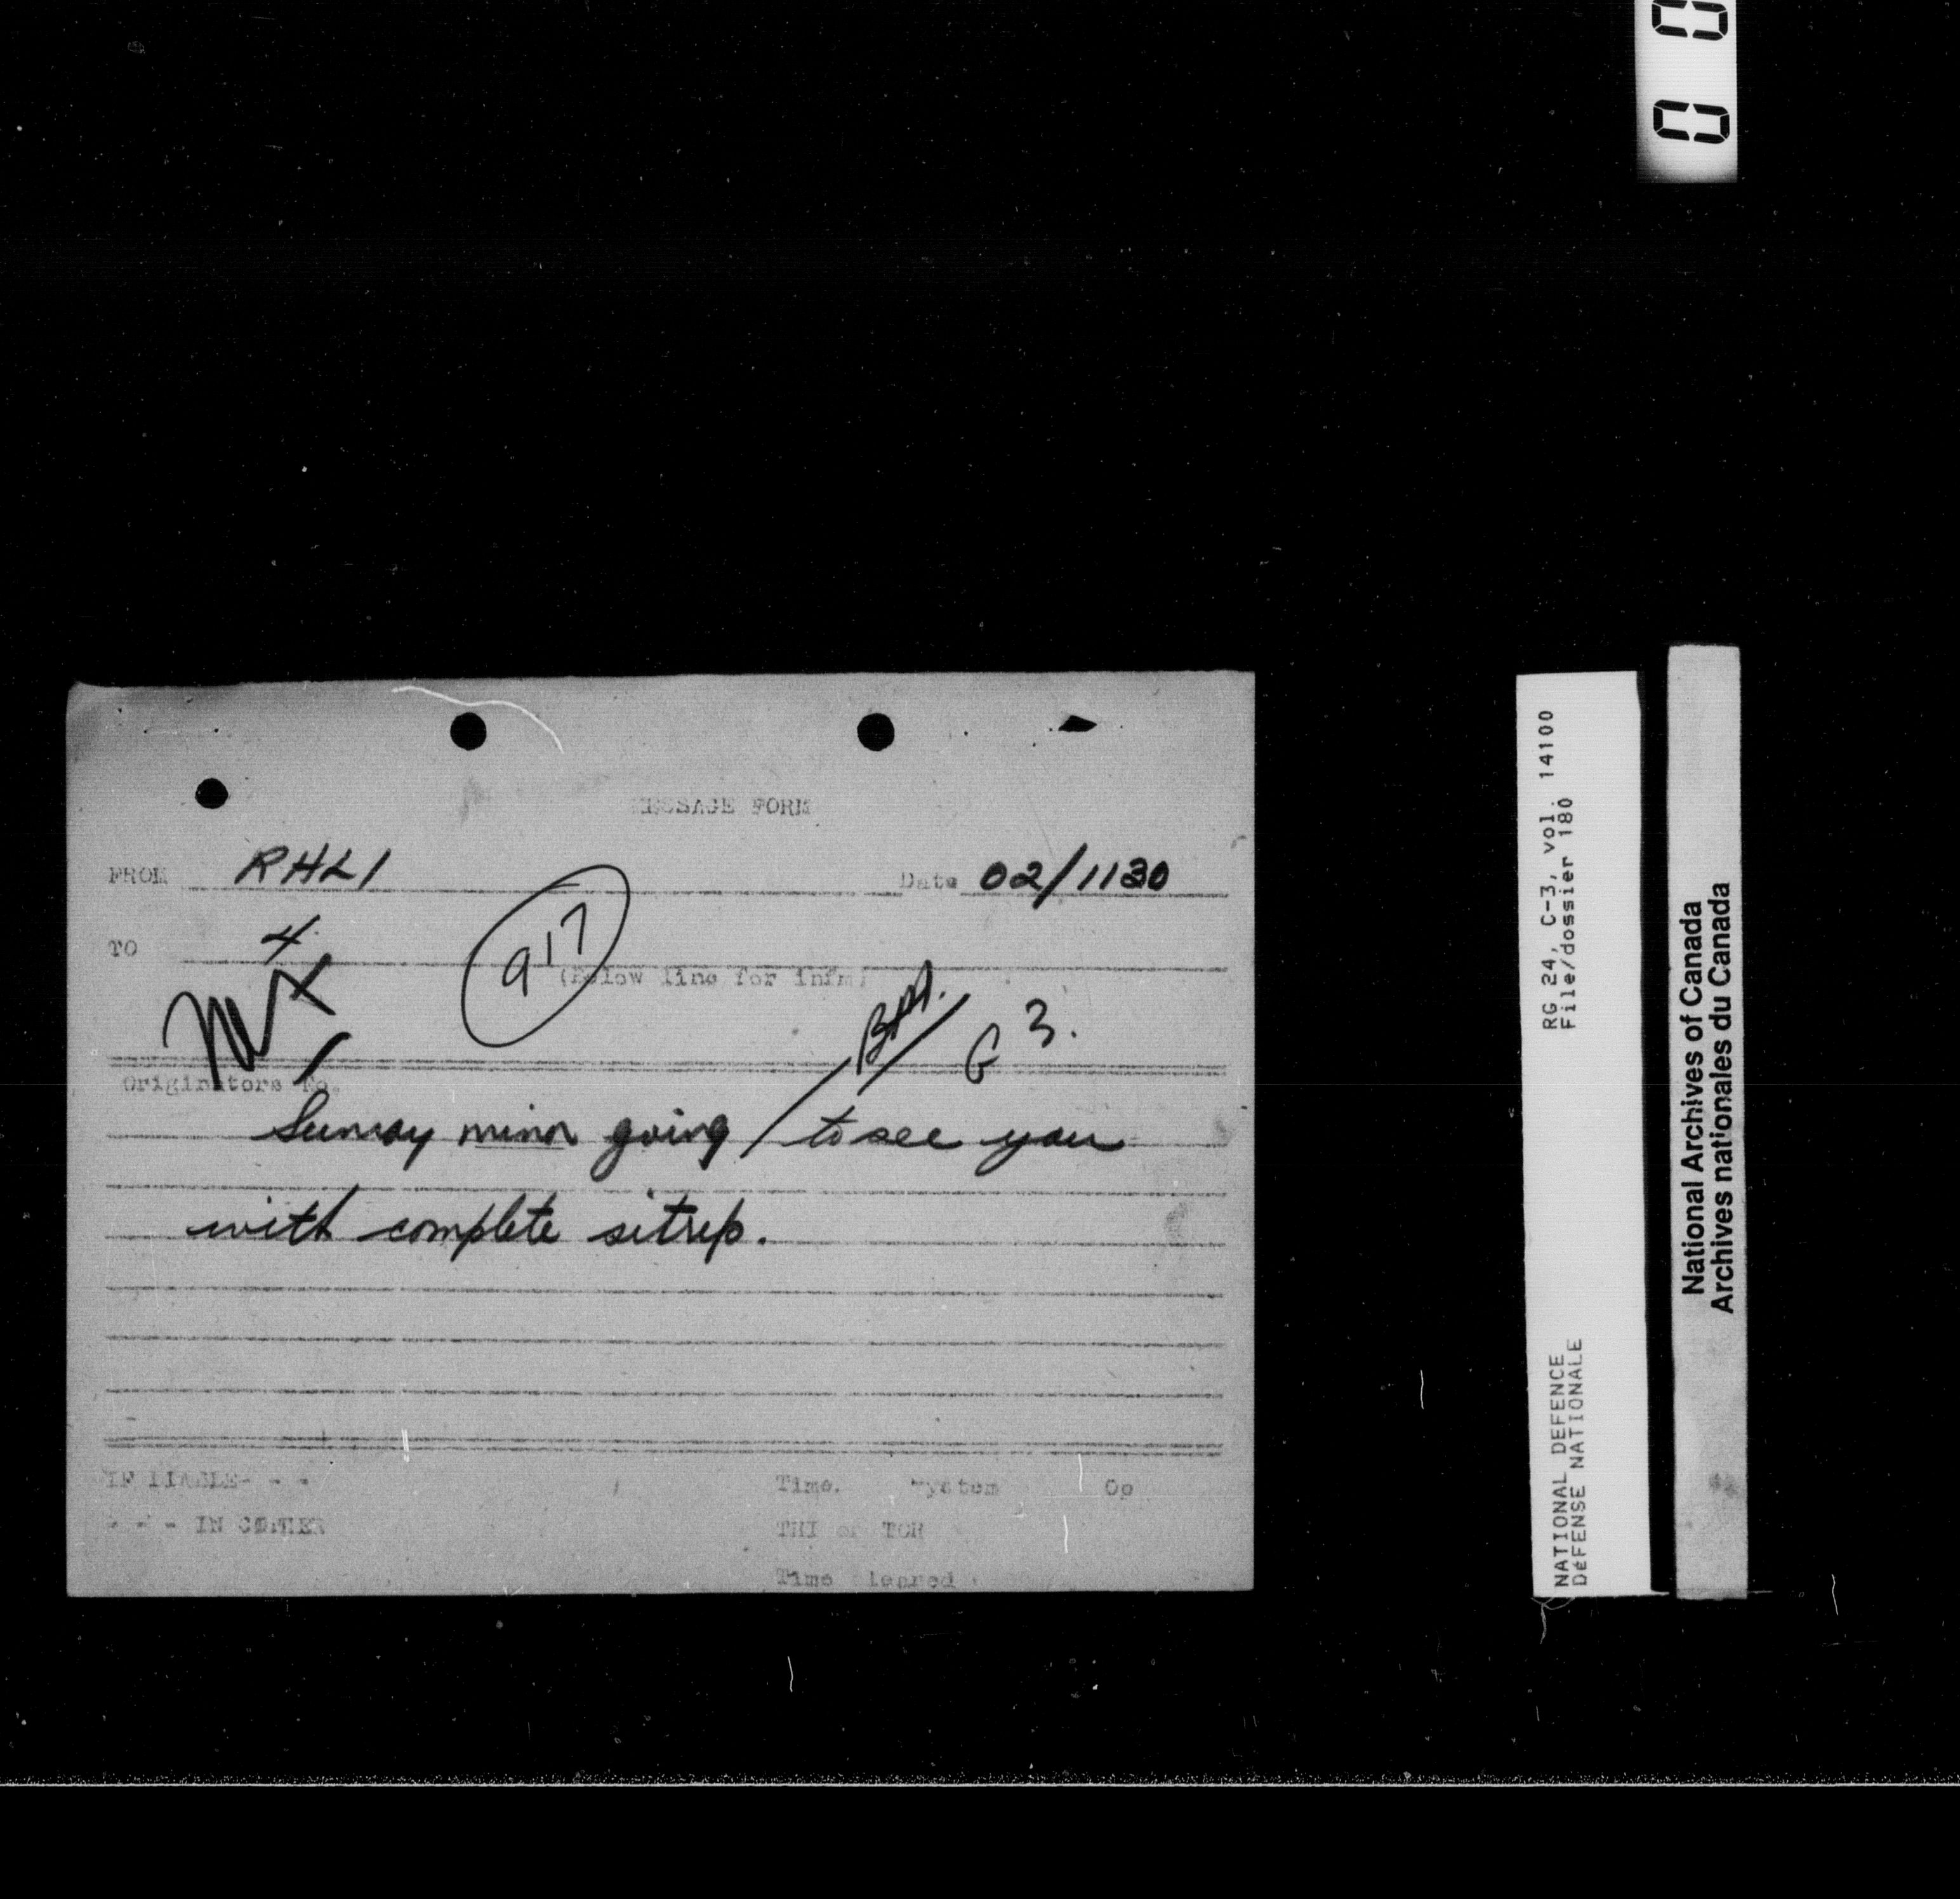 0 0
MESSAGE FORM
FROM RHLI Date 02/1130
TO 4
917
(Below line for infm)
G 3.
Originators No.
Sunray minor going / to see you
with complete sitrep.
IF LIABLE - - - Time. System Op
- - - IN CIPHER THI or TOR
Time cleared
RG 24, C-3, vol. 14100
File/dossier 180
NATIONAL DEFENCE
DéFENSE NATIONALE
National Archives of Canada
Archives nationales du Canada